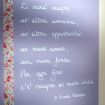 Ci sarà sempre
un'altra occasione,
un'altra opportunità,
un nuovo amore,
una nuova forza.
Per ogni fine
c'è sempre un nuovo inizio.